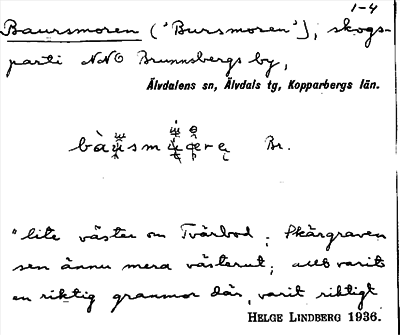 1-4
Baursmoren ("Bursmoren"), skogs-
parti NNO Brunnsbergs by,
Älvdalens sn, Älvdals tg, Kopparbergs län.
Br.
"lite väster om Tvärbod; Skärgraven
sen ännu mera västerut; alltvarits
en riktig granmor där, varit riktigt
HELGE LINDBERG 1936.